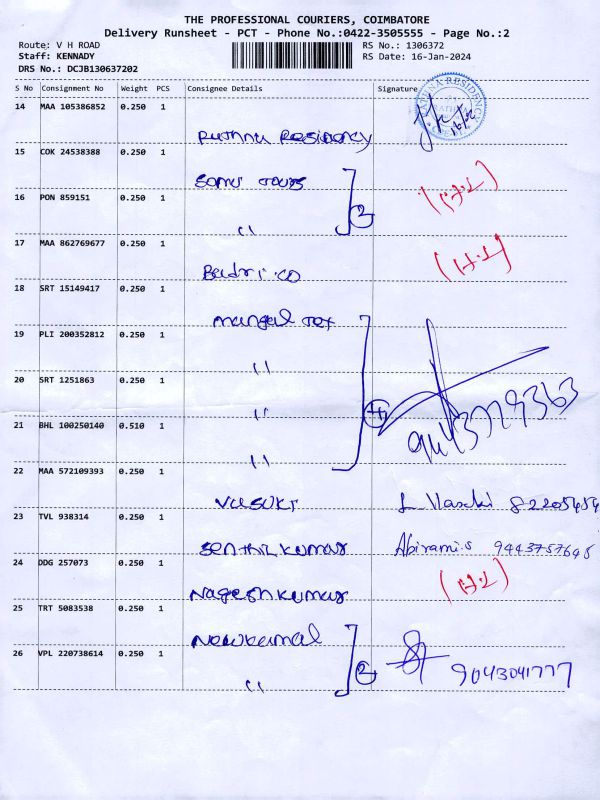 THE PROFESSIONAL COURIERS, COIMBATORE
Delivery Runsheet - PCT - Phone No.:0422-3505555 - Page No.:2
Route: V H ROAD
RS No.: 1306372
Staff: KENNADY
RS Date: 16-Jan-2024
DRS No.: DCJB130637202
S No Consignment No Weight PCS Consignee Details Signature
14 MAA 105386852 0.250 1
Ruthna Residency
15 COK 24538388 0.250 1
Somu Tours
(H.L)
16 PON 859151 0.250 1
2
"
17 MAA 862769677 0.250 1
Badri.co (H.L)
18 SRT 15149417 0.250 1
mangal Tex
19 PLI 200352812 0.250 1
"
20 SRT 1251863 0.250 1
" 4
21 BHL 100250140 0.510 1
"
22 MAA 572109393 0.250 1
VUSUKI
23 TVL 938314 0.250 1
Senthil kumar Abirami.s 9443757645
24 DDG 257073 0.250 1
Nagesh kumar (H.L)
25 TRT 5083538 0.250 1
New kamal
26 VPL 220738614 0.250 1
2
" 9043041777